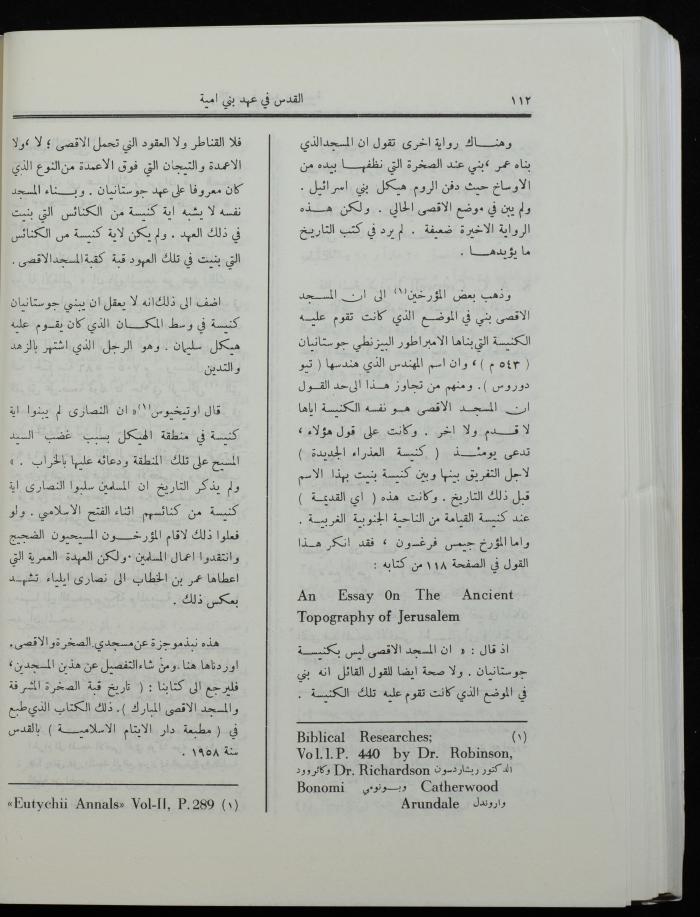 ١١٢
القدس في عهد بني امية
وهنـــاك رواية اخرى تقول ان المسجدالذي
بناه عمر ،بني عند الصخرة التي نظفهـــا بيده من
الاوساخ حيث دفن الروم هيكل بني اسرائيل .
ولم يبن في موضع الاقصى الحالي . ولكن هـــذه
الرواية الاخيرة ضعيفة . لم يرد في كتب التاريـخ
ما يؤيدهـــا .
وذهب بعض المؤرخين(١) الى ان المسـجد
الاقصى بني في الموضـع الذي كانت تقوم عليـه
الكنيسة التي بناها الامبراطور البيزنطي جوستانيان
( ٥٤٣ م ) ، وان اسم المهندس الذي هندسها ( تيو
دوروس ) . ومنهم من تجاوز هـذا الى حد القـول
ان المسجـد الاقصى هـو نفسه الكنيسة اياها
لا قـدم ولا اخر . وكانت على قول هؤلاء ،
تدعى يومئـذ ( كنيسة العذراء الجديدة )
لاجل التفريق بينها وبين كنيسة بنيت بهذا الاسم
قبل ذلك التاريخ . وكانت هذه ( اي القديمة )
عند كنيسة القيامة من الناحية الجنوبية الغربيـة .
واما المؤرخ جيمس فرغسون ، فقد انكر هـذا
القول في الصفحة ١١٨ من كتابه :
An Essay On The Ancient
Topography of Jerusalem
اذ قال : « ان المسجد الاقصى ليس بكنيسـة
جوستانيان . ولا صحة ايضا للقول القائل انه بني
في الموضع الذي كانت تقوم عليه تلك الكنيسة .
(١) Biblical Researches;
Vol.I.P. 440 by Dr. Robinson,
الدكتور ريشاردسون Dr. Richardson وكاثروود
Bonomi وبـونومي Catherwood
واروندل Arundale
فلا القناطر ولا العقود التي تحمل الاقصى ؛ لا ،ولا
الاعمدة والتيجان التي فوق الاعمدة من النوع الذي
كان معروفا على عهد جوستانيان . وبـناء المسجد
نفسه لا يشبه اية كنيسة من الكنائس التي بنيت
في ذلك العهد . ولم يكن لاية كنيسة من الكنائس
التي بنيت في تلك العهود قبة كقبة المسجد الاقصى .
اضف الى ذلك انه لا يعقل ان يبني جوستانيان
كنيسة في وسط المكـــان الذي كان يقـوم عليه
هيكل سليمان . وهو الرجل الذي اشتهر بالزهد
والتدين
قال اوتيخيوس(١) « ان النصارى لم يبنوا اية
كنيسة في منطقة الهيكل بسبب غضب السيد
المسيح على تلك المنطقة ودعائه عليها بالخراب . »
ولم يذكر التاريخ ان المسلمين سلبوا النصارى اية
كنيسة من كنائسهم اثناء الفتح الاسلامي . ولو
فعلوا ذلك لاقام المؤرخـــون المسيحيون الضجيج
وانتقدوا اعمال المسلمين . ولكن العهدة العمرية التي
اعطاها عمر بن الخطاب الى نصارى ايلياء تشهـد
بعكس ذلك .
هذه نبذ موجزة عن مسجدي الصخرة والاقصى.
اوردناها هنا .ومن شاء التفصيل عن هذين المسجدين،
فليرجع الى كتابنا : ( تاريخ قبة الصخرة المشرفة
والمسجد الاقصى المبارك ) . ذلك الكتاب الذي طبع
في ( مطبعة دار الايتام الاسلاميـــة ) بالقدس
سنة ١٩٥٨ .
«Eutychii Annals» Vol-II, P.289 (١)